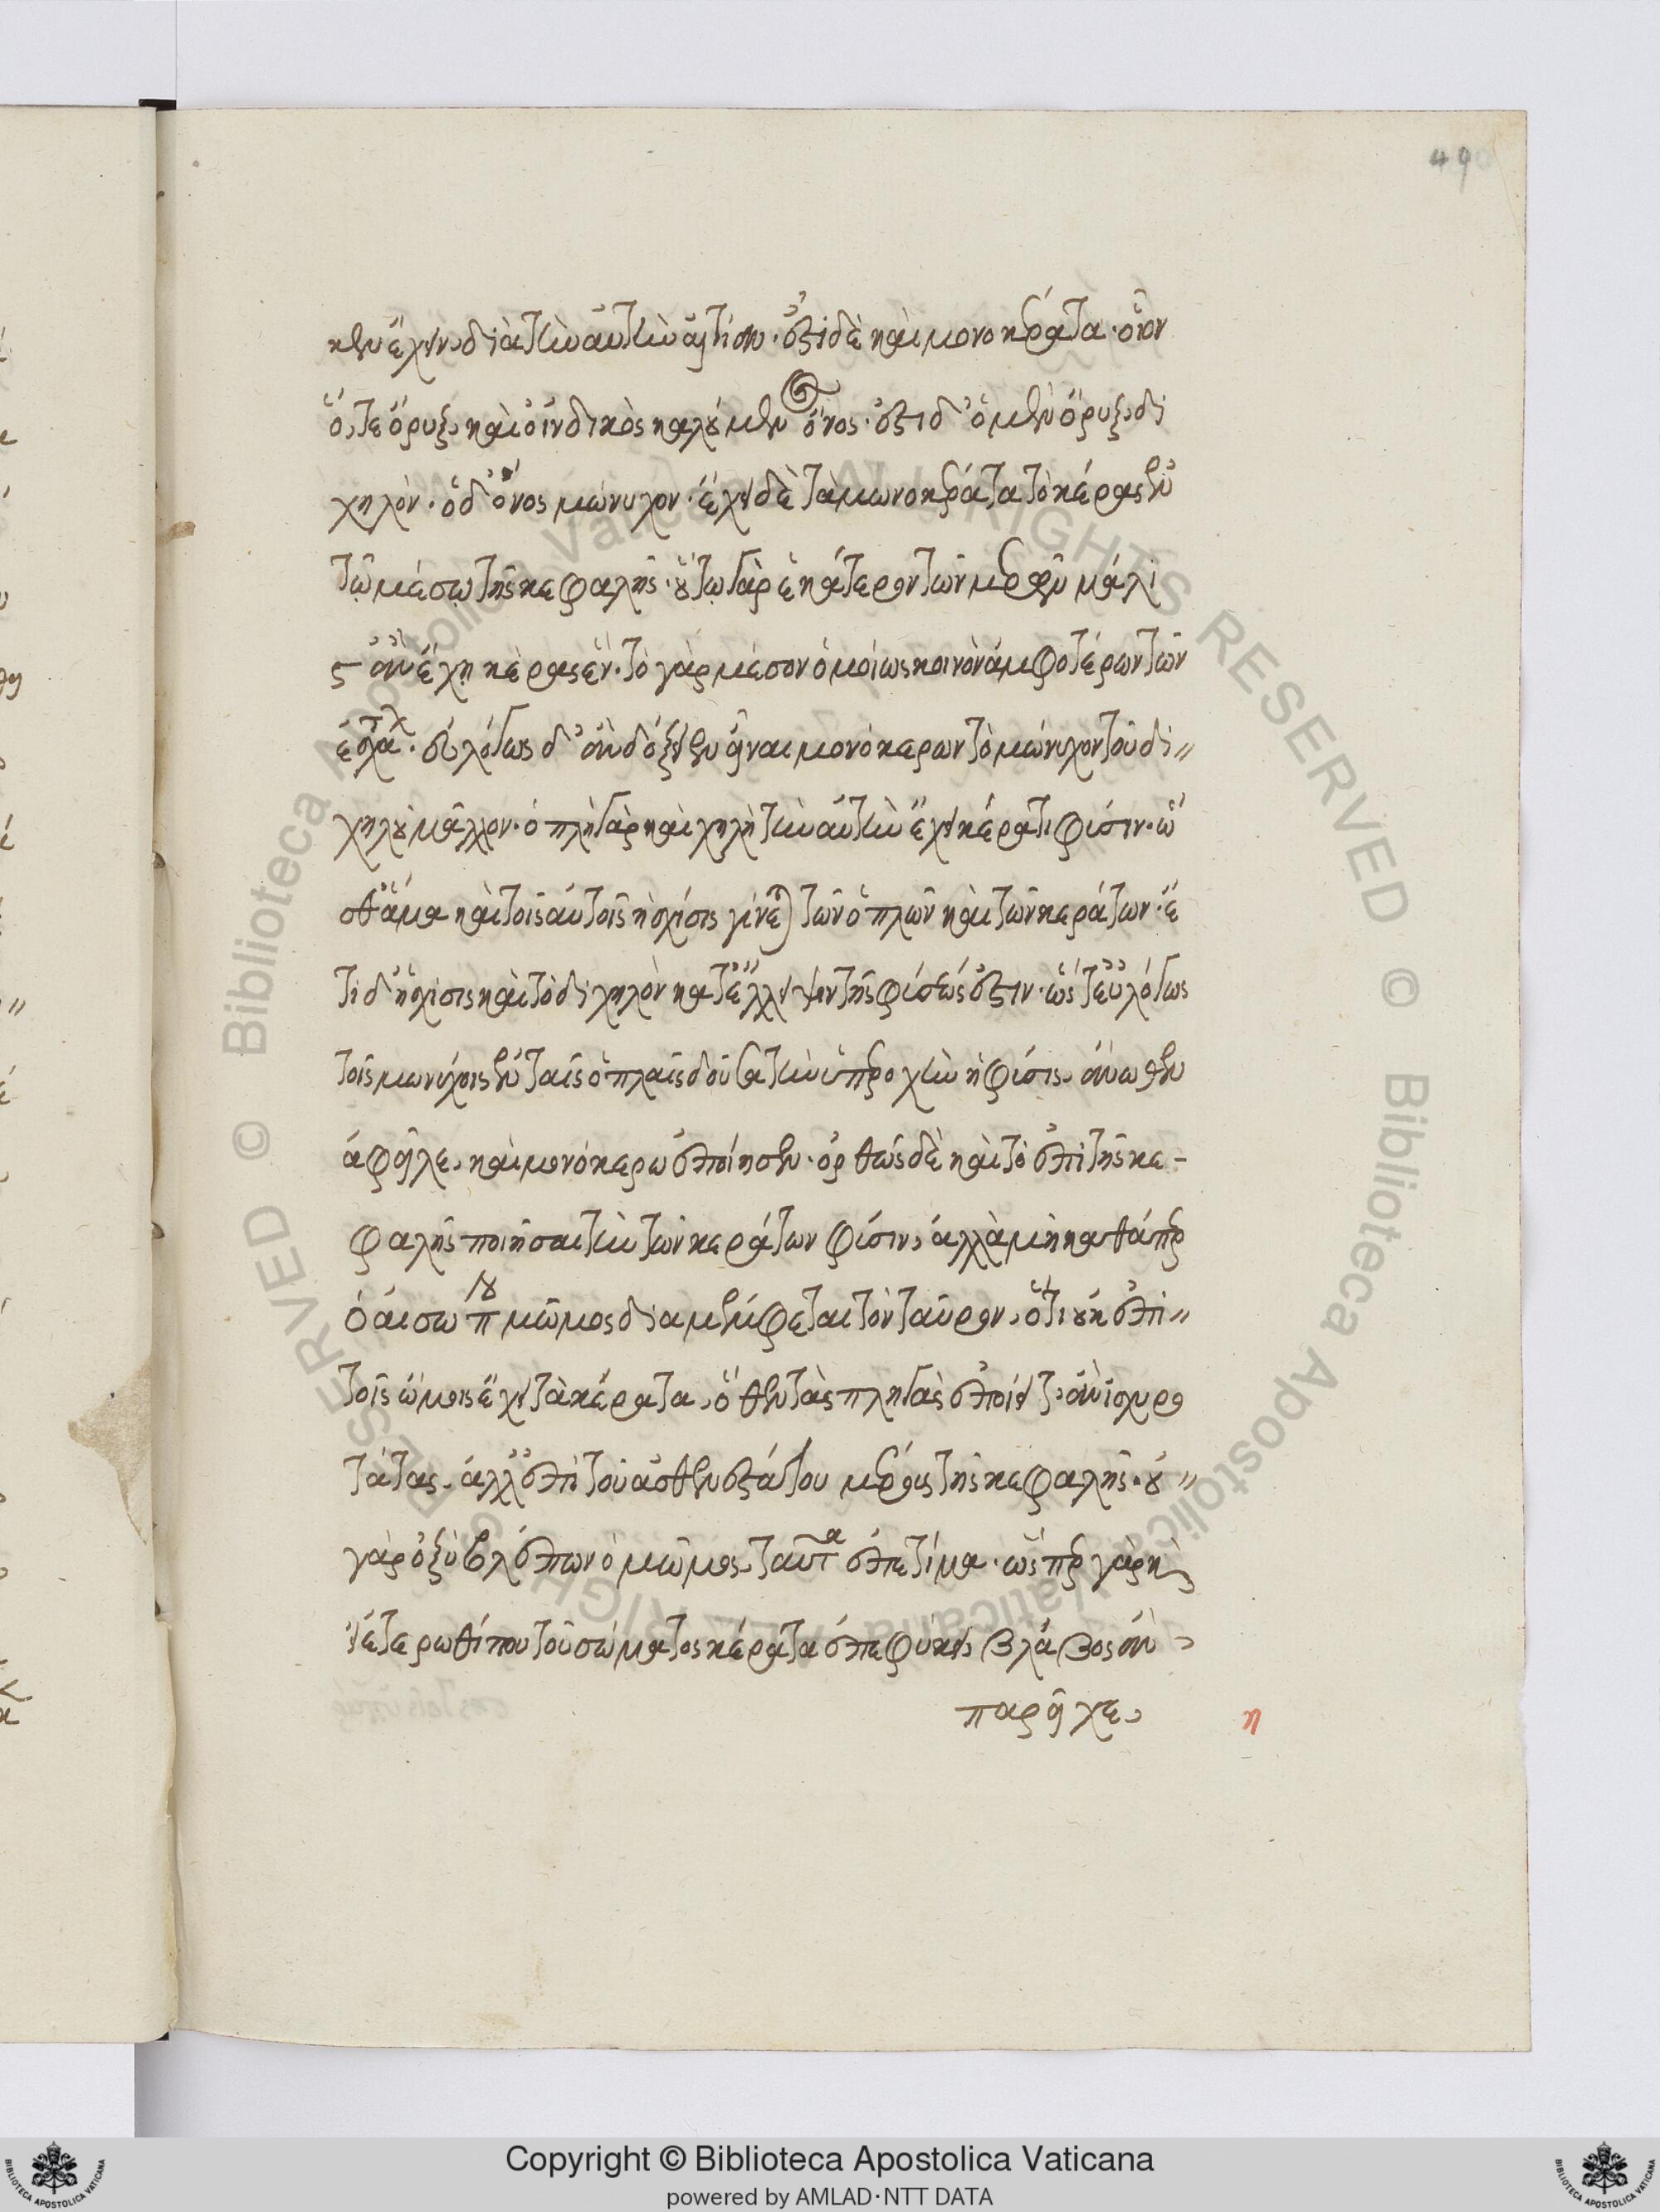 490
κεν ἔχειν, διὰ τὴν αὐτὴν αἰτίαν. ἔστι δὲ καὶ μονοκέρατα. οἷον
ὅ, τε ὄρυξ, καὶ ὁ ἰνδικὸς καλούμεν ὄνος. ἔστι δ' ὁ μὲν ὄρυξ, δι
χηλόν. ὁ δ' ὄνος μώνυχον. ἔχει δὲ τὰ μωνοκέρατα τὸ κέρας ἐν
τῷ μέσῳ τῆς κεφαλῆς. οὕτω γὰρ ἑκάτερον τῶν μερῶν μάλι
στ ἂν ἔχῃ κέρας ἕν. τὸ γὰρ μέσον ὁμοίως κοινὸν ἀμφοτέρων τῶν
ἐσχάτ. εὐλόγως δ' ἂν δόξειεν εἶναι μονόκερων τὸ μώνυχον τοῦ δι
χηλοῦ μᾶλλον. ὁπλὴ γὰρ καὶ χηλὴ τὴν αὐτὴν ἔχει κέρατι φύσιν. ὥ
σθ' ἅμα καὶ τοῖς αὐτοῖς ἡ σχίσις γίνεται τῶν ὁπλῶν καὶ τῶν κεράτων. ἔ
τι δ' ἡ σχίσις καὶ τὸ διχηλὸν κατ' ἔλλειψιν τῆς φύσεώς ἐστιν. ὥστ' εὐλόγως
τοῖς μωνύχοις ἐν ταῖς ὁπλαῖς δοῦσα τὴν ὑπεροχὴν ἡ φύσις, ἄνωθεν
ἀφεῖλε, καὶ μονόκερω ἐποίησεν. ὀρθῶς δὲ καὶ τὸ ἐπὶ τῆς κε-
φαλῆς ποιῆσαι τὴν τῶν κεράτων φύσιν, ἀλλὰ μὴ καθάπερ
ὁ αἰσώπου μῶμος διαμέμφεται τὸν ταῦρον, ὅτι οὐκ ἐπὶ
τοῖς ὤμοις ἔχει τὰ κέρατα, ὅθεν τὰς πληγὰς ἐποίειτ' ἂν ἰσχυρο
τάτας, ἀλλ' ἐπὶ τοῦ ἀσθενεστάτου μέρους τῆς κεφαλῆς. οὐ
γὰρ ὀξὺ βλέπων ὁ μῶμος, ταῦτα ἐπετίμα. ὥσπερ γὰρ καὶ
εἰ ἑτέρωθί που τοῦ σώματος κέρατα ἐπεφύκει, βλάβος ἂν
παρεῖχε,